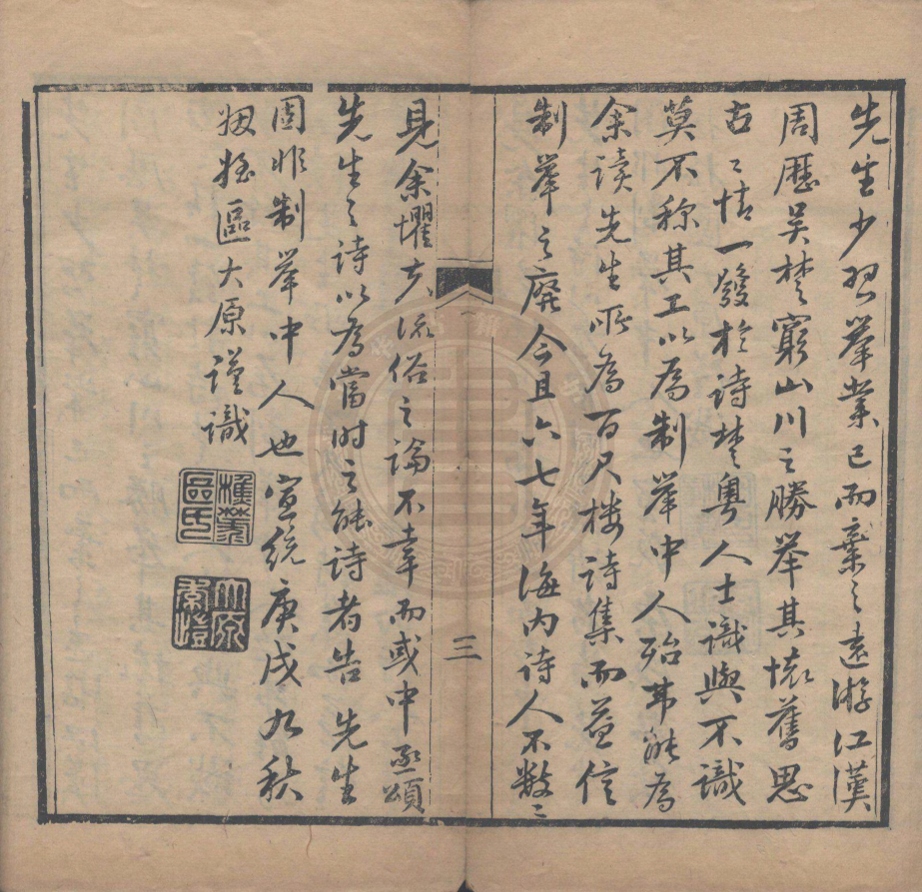 先生少習舉業已而棄之遠游江漢
周歷吳楚窮山川之勝舉其懷舊思
古之情一發於詩楚粵人士識與不識
莫不稱其工以為制舉中人殆弗能為
余讀先生所為百尺樓詩集而益信
制舉之廢今且六七年海內詩人不數之
見余懼夫流俗之論不幸而或中亟頌
先生之詩以為當时之能詩者告先生
固非制舉中人也宣統庚戌九秋
姻姪區大原謹識
區氏
大原
三